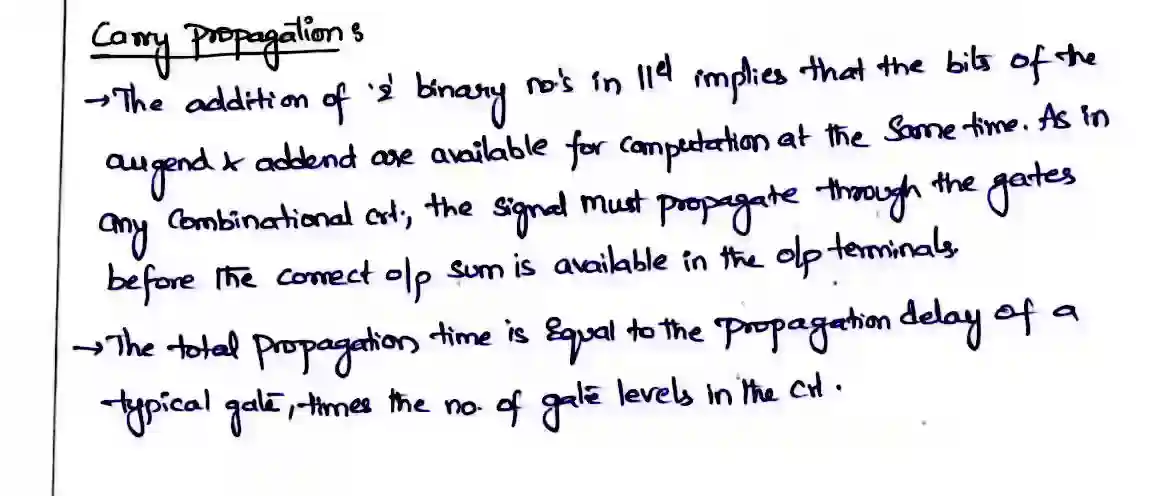 Carry Propagation :
→ The addition of '2' binary no's in ||el implies that the bits of the
augend & addend are available for computation at the same time. As in
any Combinational crt., the signal must propagate through the gates
before the correct o/p sum is available in the o/p terminals.
→ The total propagation time is Equal to the propagation delay of a
typical gate, times the no. of gate levels in the crt.